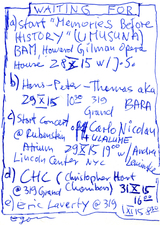 WAITING FOR
a) start "Memories Before
HISTORY" (UMUSUNA)
BAM, Howard Gilman Opera
House 28 X 15 w/ J.S.
b) Hans-Peter-Thomas aka
29 X 15 10:00 319 BARA
Grand
c) Start Concert Carlo Nicolay
@ Rubenstein ULALUME
Atrium 29 X 15 19:00 w/
Lincoln Center NYC
d) CHC (Christopher Hart
@ 319 Grand Chambers) 31 X 15
16:00
e) eric Laverty @ 319 1 XI 15